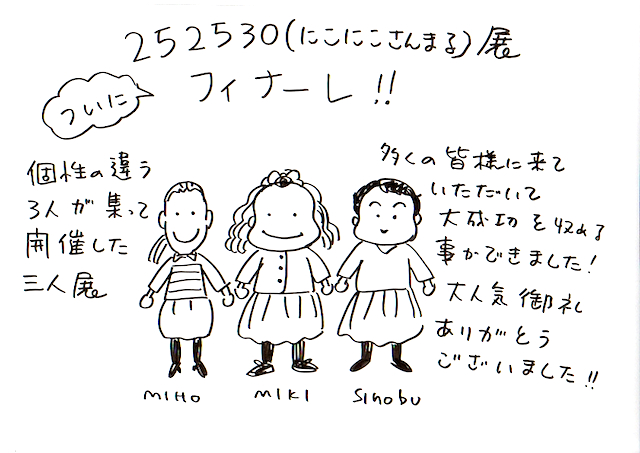 252530(にこにこさんまる)展
フィナーレ!!
ついに
個性の違う
3人が集って
開催した
三人展
多くの皆様に来て
いただいて
大成功を収める
事ができました!
大人気御礼
ありがとう
ございました!!
MIHO
MIKI
SINOBU